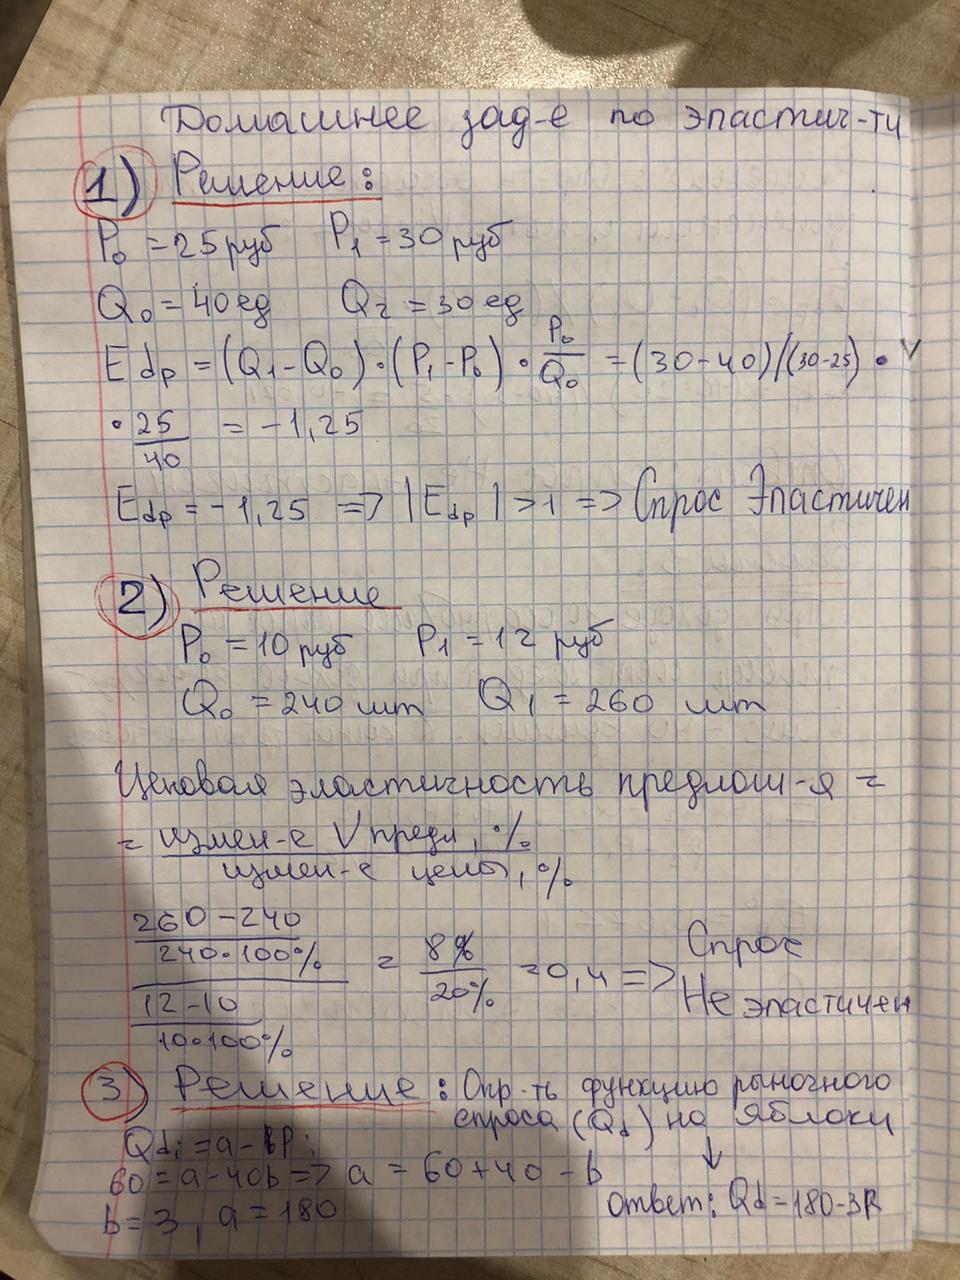 Домашнее зад-е по эластич-ти
1) Решение:
P₀ = 25 руб P₁ = 30 руб
Q₀ = 40 ед Q₂ = 30 ед
Edp = (Q₁ - Q₀) · (P₁ - P₀) · P₀/Q₀ = (30 - 40)/(30-25) ·
· 25/40 = -1,25
Edp = -1,25 => |Edp| > 1 => Спрос Эластичен
2) Решение
P₀ = 10 руб P1 = 12 руб
Q₀ = 240 шт Q₁ = 260 шт
Ценовая эластичность предлож-я =
= измен-е V предл, % / измен-е цены, %
260 - 240 / 240·100% / 12 - 10 / 10·100% = 8% / 20% = 0,4 => Спрос Не эластичен
3) Решение: Опр-ть функцию рыночного
спроса (Qd) на яблоки
Qdi = a - bPi
60 = a - 40b => a = 60 + 40 - b
b = 3, a = 180
↓
Ответ: Qd = 180 - 3P